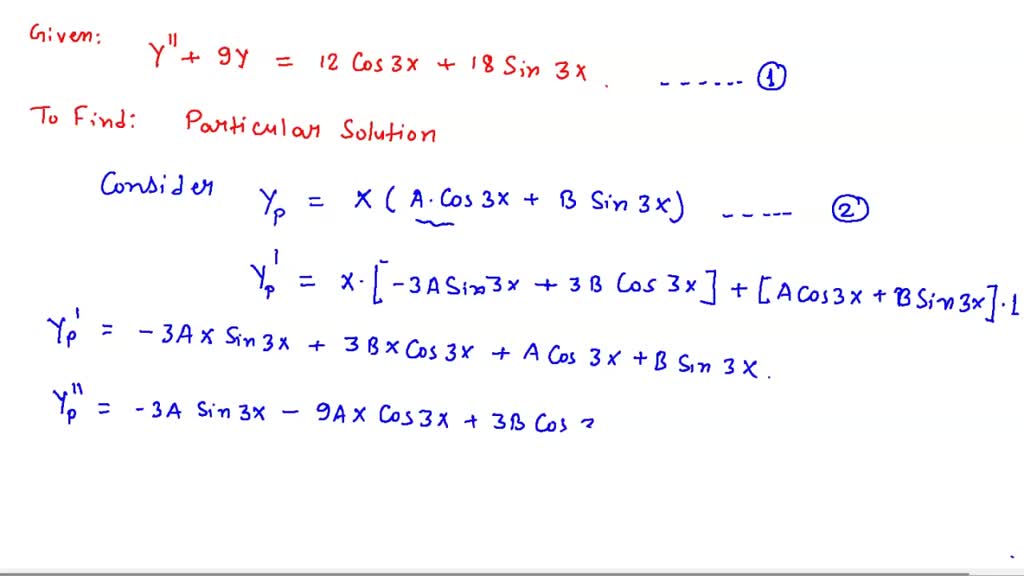 Given: Y" + 9Y = 12 Cos 3x + 18 Sin 3x. ------ ①
To Find: Particular Solution
Consider Yp = x ( A. Cos 3x + B Sin 3x) ----- ②
Yp' = x. [ -3A Sin 3x + 3B Cos 3x ] + [ A Cos 3x + B Sin 3x ] . 1
Yp' = -3A x Sin 3x + 3B x Cos 3x + A Cos 3x + B Sin 3x.
Yp" = -3A Sin 3x - 9A x Cos 3x + 3B Cos